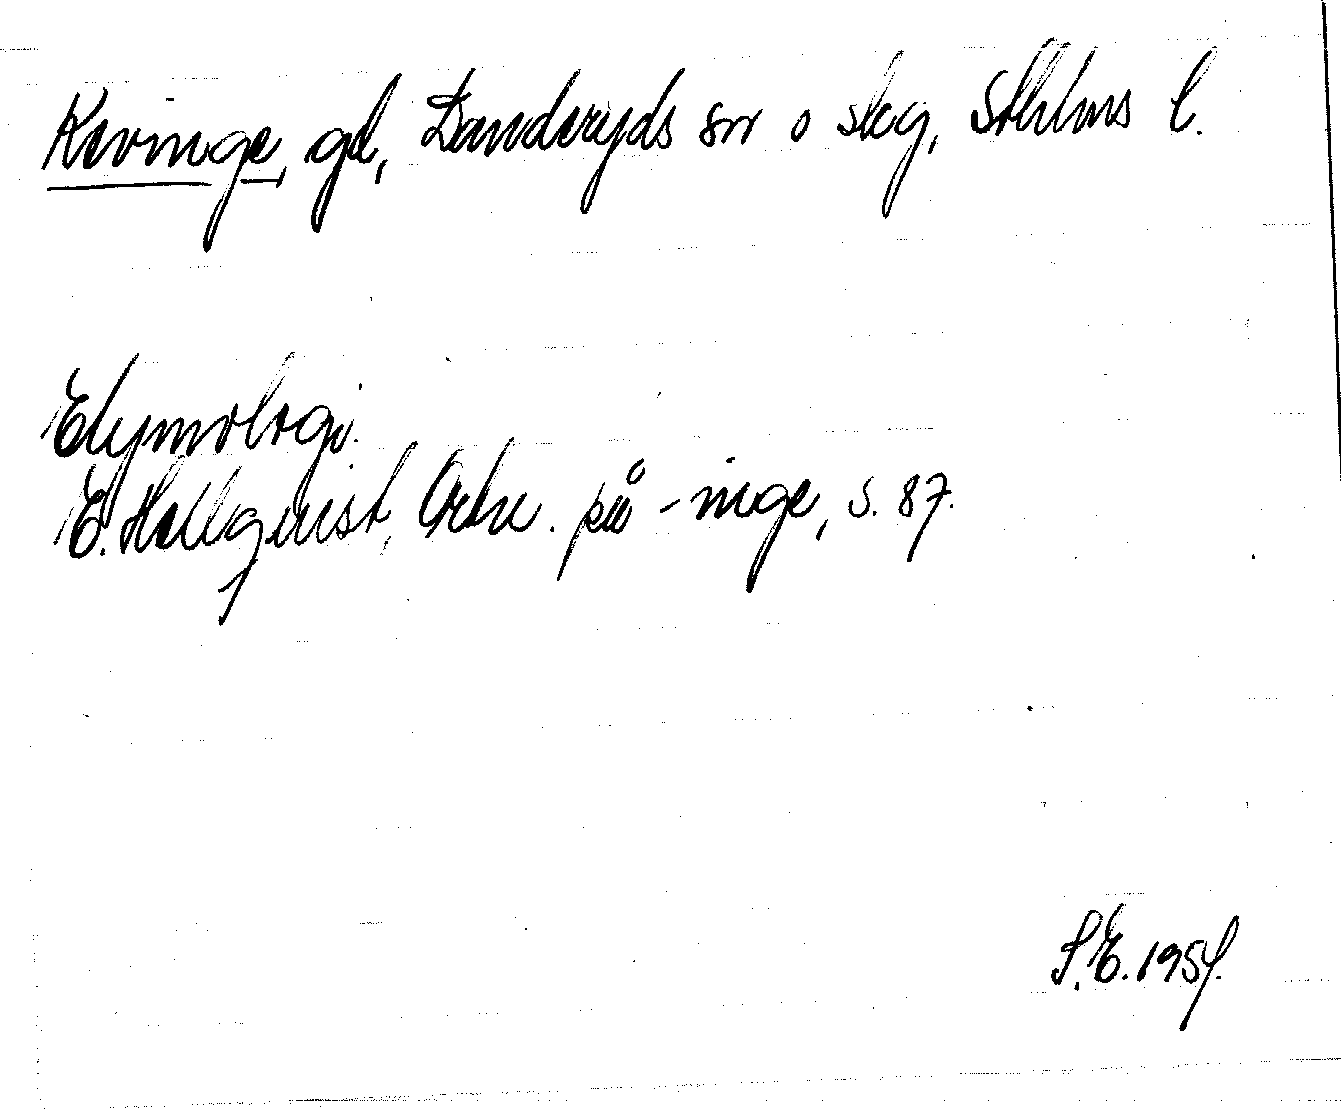 Kevinge, gd, Danderyds sn o skg, Sthlms l.
Etymologi.
E. Hellquist, Ortn. på -inge, s. 87.
S.E. 1954.